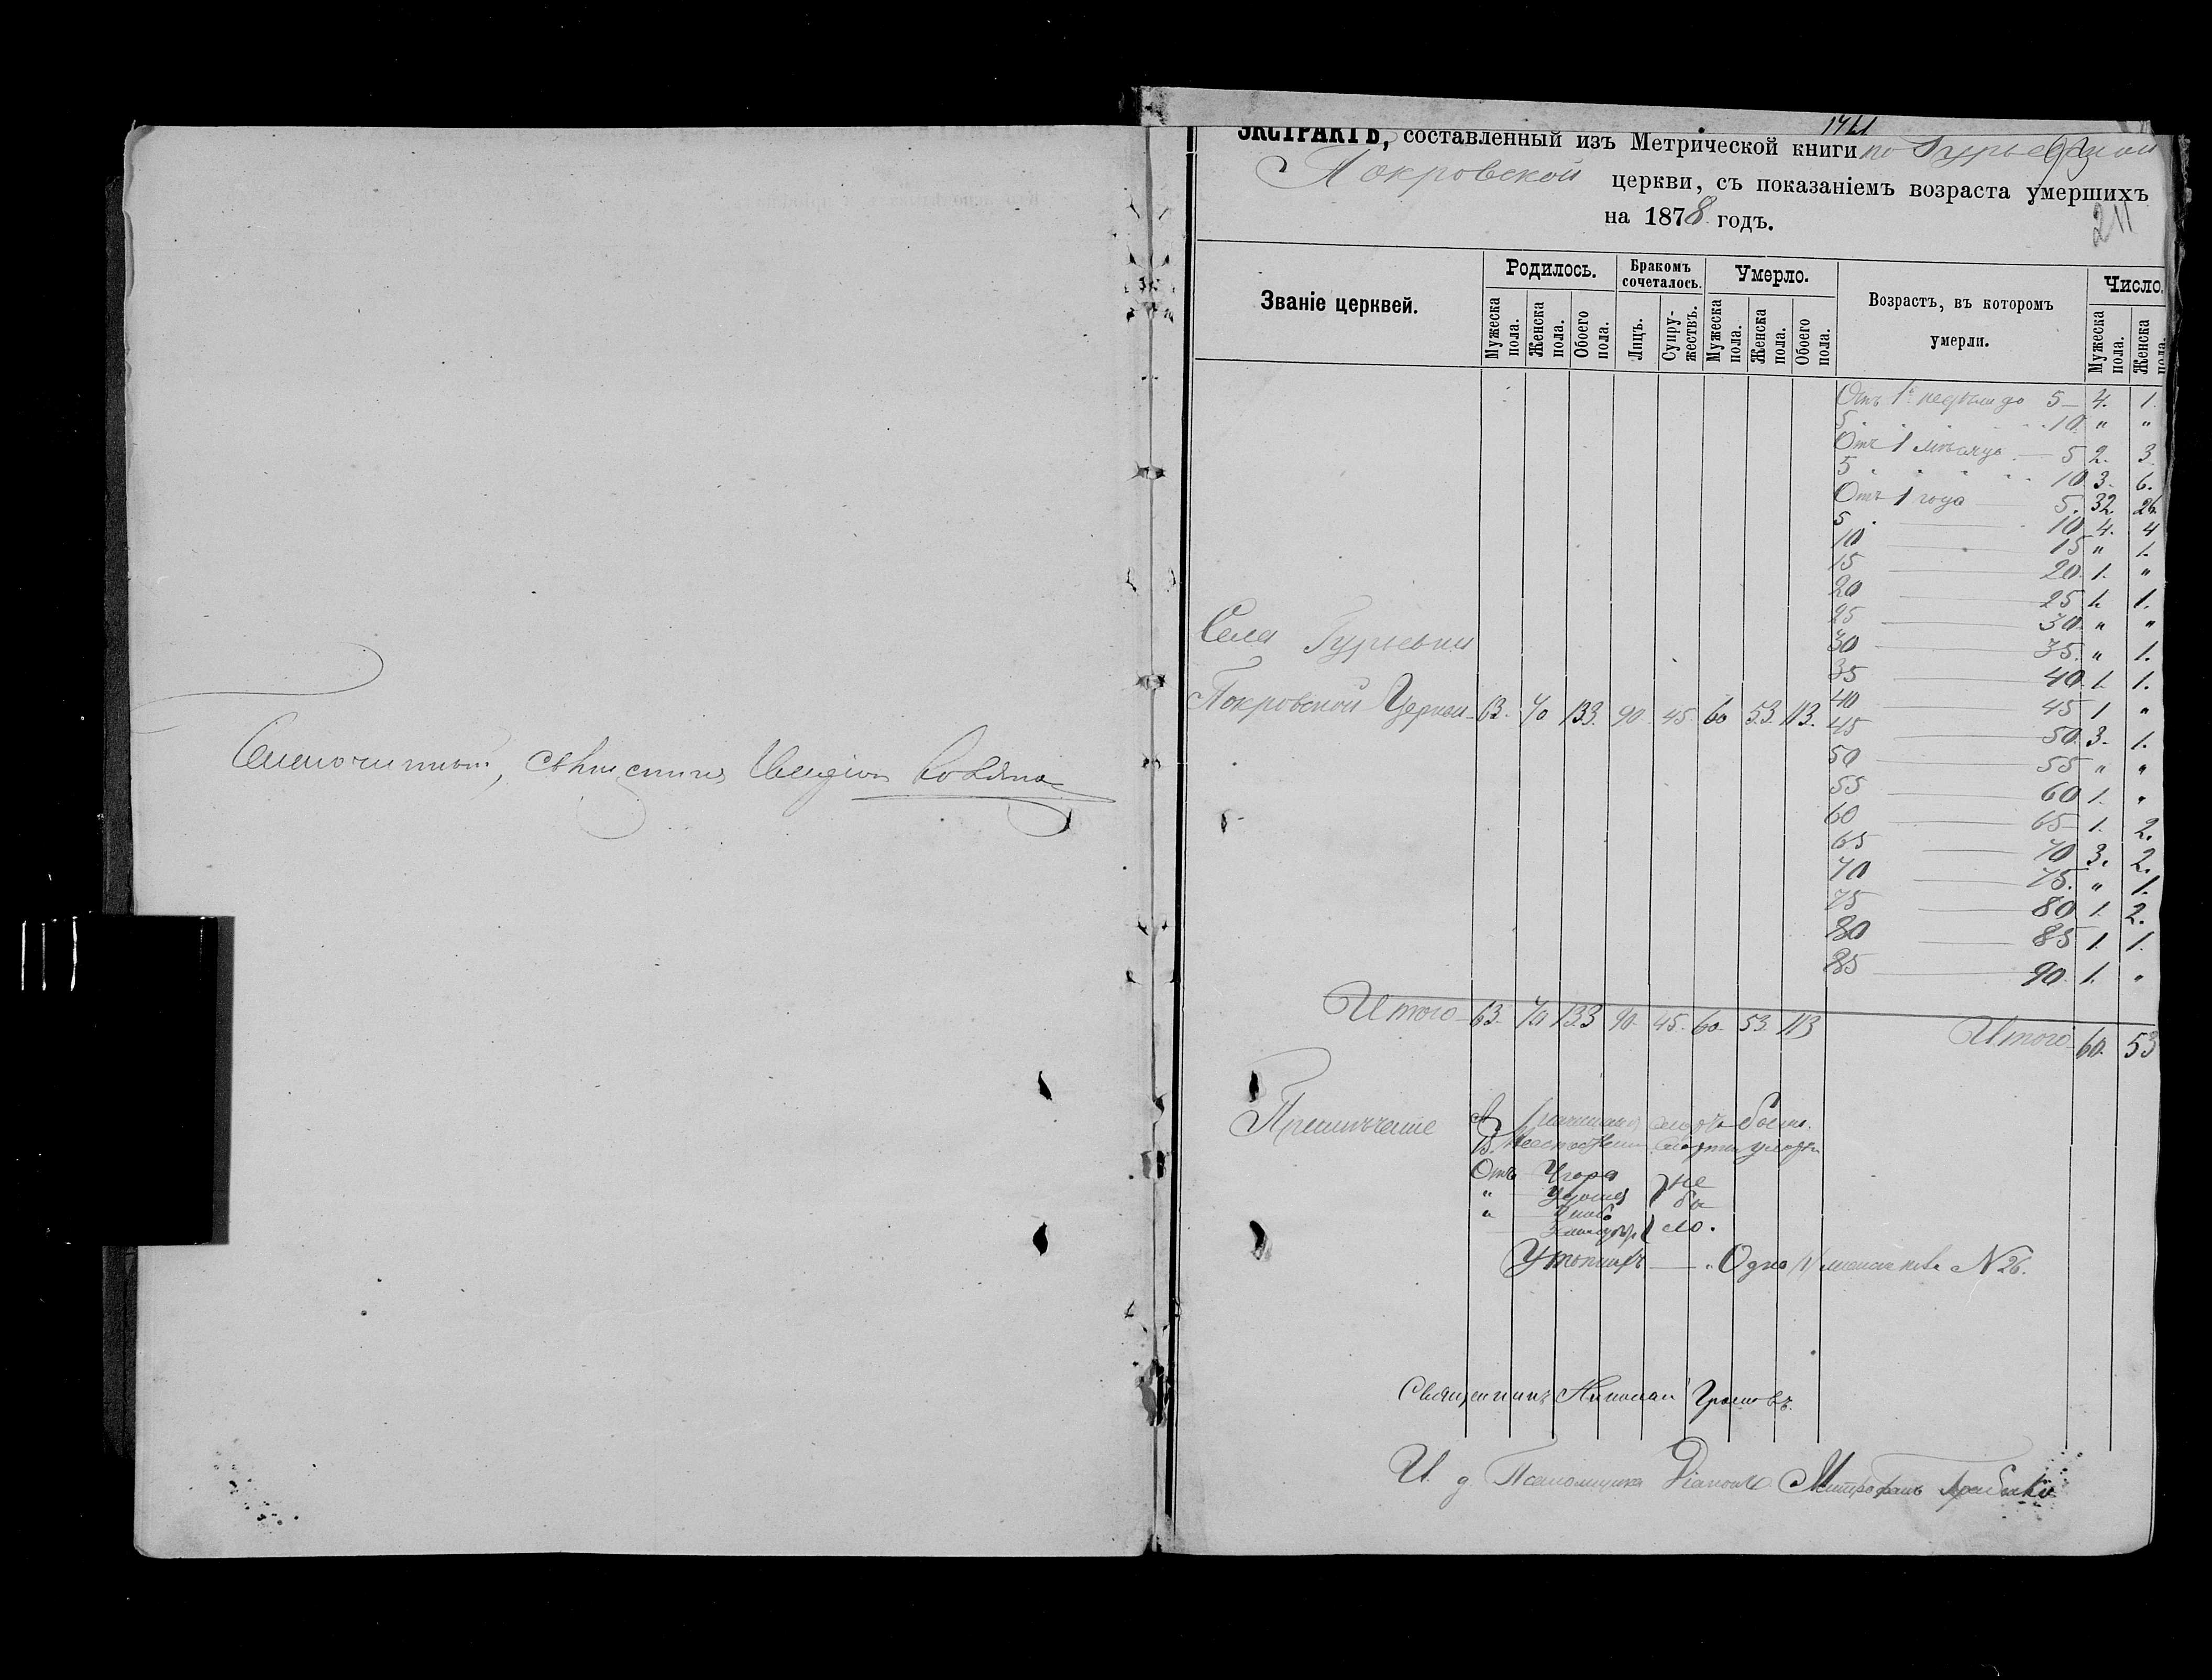 священникъ
1461
ЭКСТРАКТЪ, составленный изъ Метрической книги по Гурьевской
Покровской церкви, съ показаніемъ возраста умершихъ
на 1878 годъ.
211
Званіе церквей. Родилось. Бракомъ сочеталось. Умерло. Возрастъ, въ которомъ умерли. Число.
Мужеска пола. Женска пола. Обоего пола. Лицъ. Супружествъ. Мужеска пола. Женска пола. Обоего пола. Мужеска пола. Женска пола.
Отъ 1 недѣли до 5 4. 1.
5 10 " "
Отъ 1 мѣсяца 5 2. 3.
5 10 3. 6.
Отъ 1 года 5. 32. 26.
5 10 4. 4
10 15 " 1.
15 20. 1. "
20 25 1. 1.
25 30. " "
30 35. " 1.
35 40 1. 1.
40 45 1 "
45 50. 3. 1.
50 55 " "
55 60 1. "
60 65 1. 2.
65 70 3. 2.
70 75. " 1.
75 80 1. 2.
80 85 1. 1.
85 90 1. "
Села Гурьевки
Покровской Церкви 63. 70 133. 90. 45. 60 53. 113.
Итого 63. 70 133 90. 45. 60. 53. 113
Итого 60. 53
Примѣчаніе
Отъ Угора } не
" Удуш } бы
" } ло.
Утопшихъ — Одно № 26.
Священникъ Николай Громовъ.
И. д. Псаломщика Діаконъ Митрофанъ